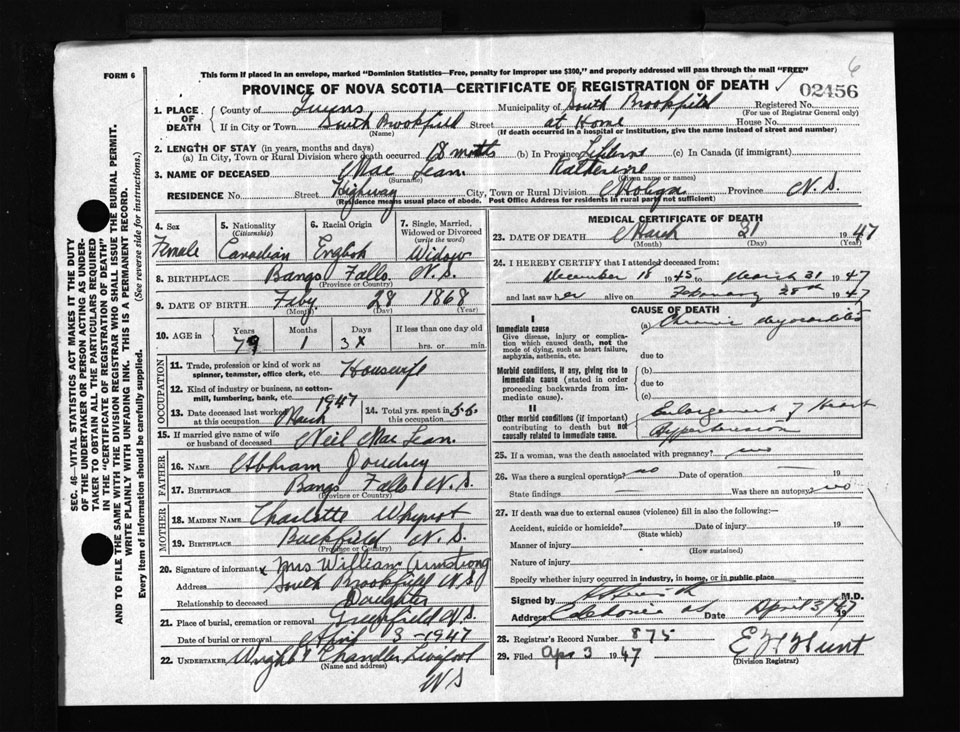 6
FORM 6
This form if placed in an envelope, marked "Dominion Statistics—Free, penalty for improper use $300," and properly addressed will pass through the mail "FREE"
PROVINCE OF NOVA SCOTIA—CERTIFICATE OF REGISTRATION OF DEATH
02456
1. PLACE OF DEATH County of Queens Municipality of South Brookfield Registered No.
(For use of Registrar General only)
If in City or Town South Brookfield Street at Home House No.
(Name) (If death occurred in a hospital or institution, give the name instead of street and number)
2. LENGTH OF STAY (in years, months and days)
(a) In City, Town or Rural Division where death occurred 18 months (b) In Province Lifetime (c) In Canada (if immigrant)
3. NAME OF DECEASED Mac Lean Katherine
(Surname) (Given name or names)
RESIDENCE No. Street Highway City, Town or Rural Division Province N.S.
(Residence means usual place of abode. Post Office Address for residents in rural parts not sufficient)
4. Sex Female
5. Nationality (Citizenship) Canadian
6. Racial Origin English
7. Single, Married, Widowed or Divorced (write the word) Widow
8. BIRTHPLACE Bangs Falls N.S.
(Province or Country)
9. DATE OF BIRTH Feby 28 1868
(Month) (Day) (Year)
10. AGE in Years 79 Months 1 Days 3 x If less than one day old hrs. or min.
OCCUPATION
11. Trade, profession or kind of work as spinner, teamster, office clerk, etc. Housewife
12. Kind of industry or business, as cotton-mill, lumbering, bank, etc.
13. Date deceased last worked at this occupation March 1947
14. Total yrs. spent in this occupation 55
15. If married give name of wife or husband of deceased Neil Mac Lean
FATHER
16. NAME Abham Joudrey
17. BIRTHPLACE Bangs Falls N.S.
(Province or Country)
MOTHER
18. MAIDEN NAME Charlotte Whynot
19. BIRTHPLACE Buckfield N.S.
(Province or Country)
20. Signature of informant x Mrs William Armstrong
Address South Brookfield N.S.
Relationship to deceased Daughter
21. Place of burial, cremation or removal Greenfield N.S.
Date of burial or removal April 3 - 1947
22. UNDERTAKER Wright & Chandler Liverpool
(Name and address)
N S
MEDICAL CERTIFICATE OF DEATH
23. DATE OF DEATH March 31 1947
(Month) (Day) (Year)
24. I HEREBY CERTIFY that I attended deceased from:
December 18 1945 to March 31 1947
and last saw her alive on February 28th 1947
CAUSE OF DEATH
I
Immediate cause
Give disease, injury or complication which caused death, not the mode of dying, such as heart failure, asphyxia, asthenia, etc.
(a) Chronic myocarditis
due to
Morbid conditions, if any, giving rise to immediate cause (stated in order proceeding backwards from immediate cause).
(b)
due to
(c)
II
Other morbid conditions (if important) contributing to death but not causally related to immediate cause.
Enlargement of Heart
Hypertension
25. If a woman, was the death associated with pregnancy? no
26. Was there a surgical operation? no Date of operation — 19
State findings — Was there an autopsy? no
27. If death was due to external causes (violence) fill in also the following:—
Accident, suicide or homicide? Date of injury 19
(State which)
Manner of injury
(How sustained)
Nature of injury
Specify whether injury occurred in industry, in home, or in public place
Signed by M.D.
Address Caledonia Date April 3/47
19
28. Registrar's Record Number 875
29. Filed Apr 3 1947 Hunt
(Division Registrar)
SEC. 46—VITAL STATISTICS ACT MAKES IT THE DUTY
OF THE UNDERTAKER OR PERSON ACTING AS UNDER-
TAKER TO OBTAIN ALL THE PARTICULARS REQUIRED
IN THE "CERTIFICATE OF REGISTRATION OF DEATH"
AND TO FILE THE SAME WITH THE DIVISION REGISTRAR WHO SHALL ISSUE THE BURIAL PERMIT.
WRITE PLAINLY WITH UNFADING INK. THIS IS A PERMANENT RECORD.
Every item of information should be carefully supplied. (See reverse side for instructions.)